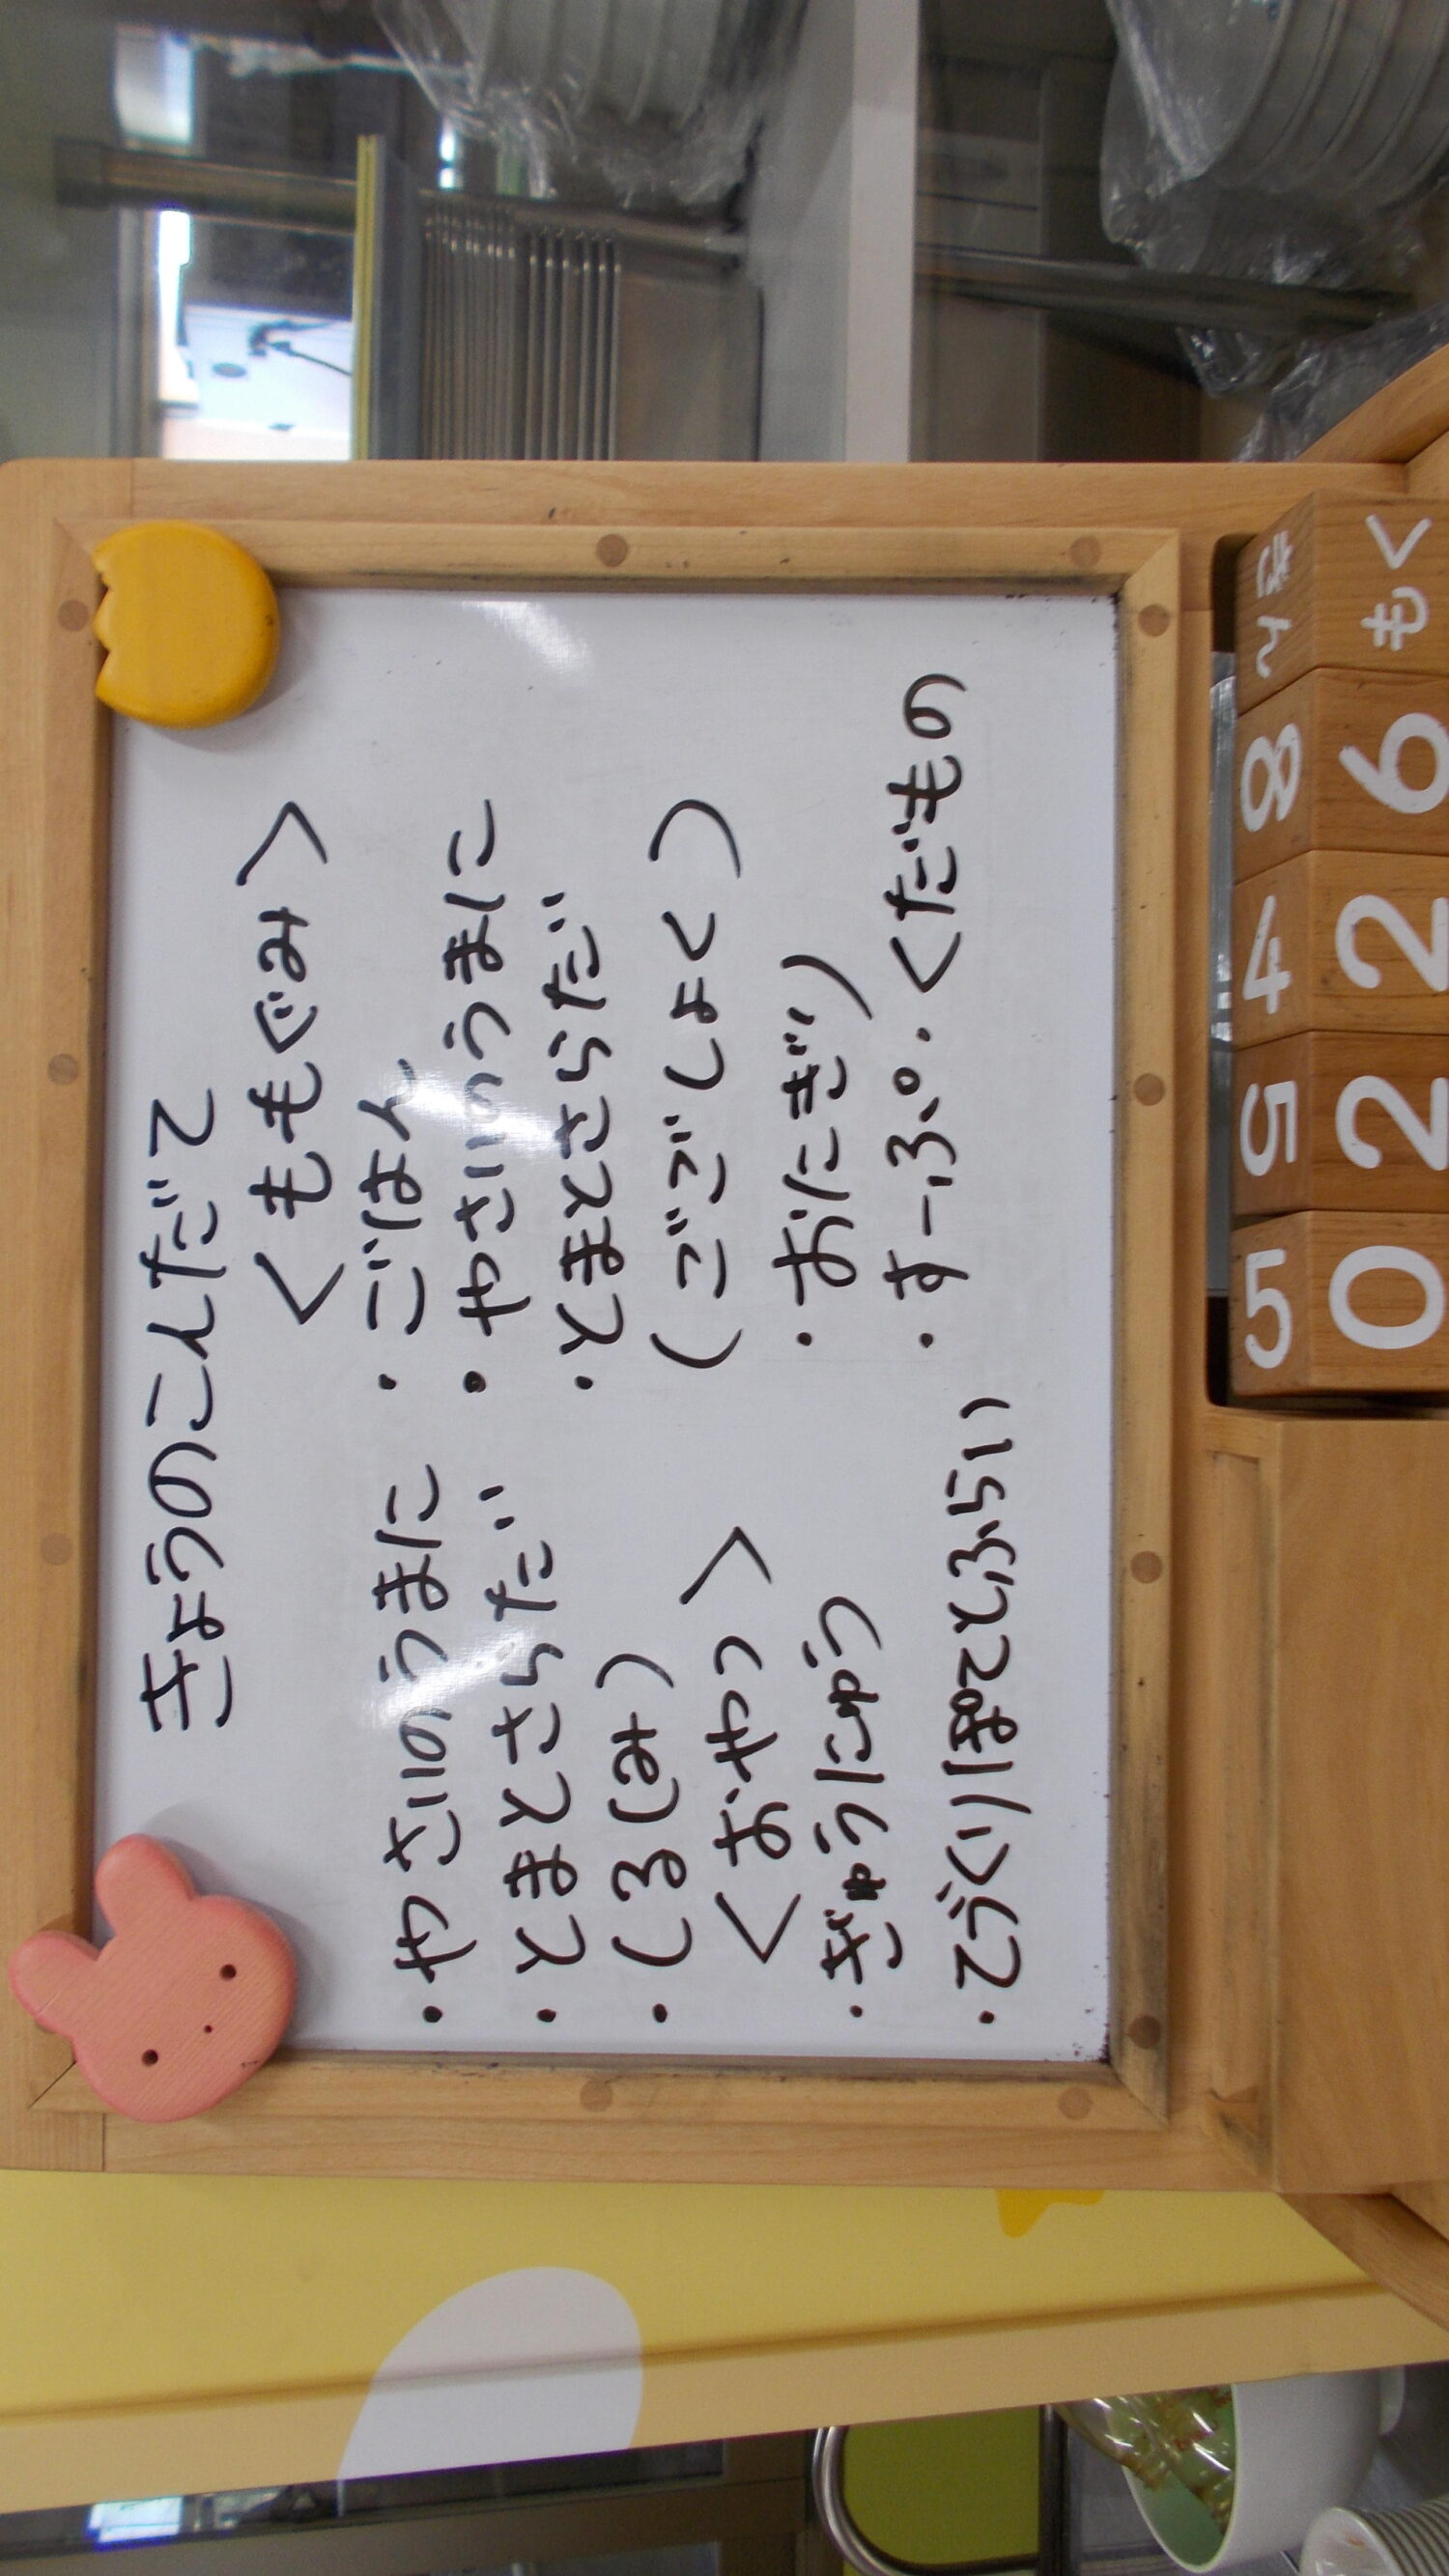 きょうのこんだて
・やさいのうまに
・とまとさらだ
・しる(み)
<おやつ>
・ぎゅうにゅう
・てづくりぽてとふらい
<ももぐみ>
・ごはん
・やさいのうまに
・とまとさらだ
(ごごしょく)
・おにぎり
・すーぷ・くだもの
5 5 4 8
0 2 2 6 もく